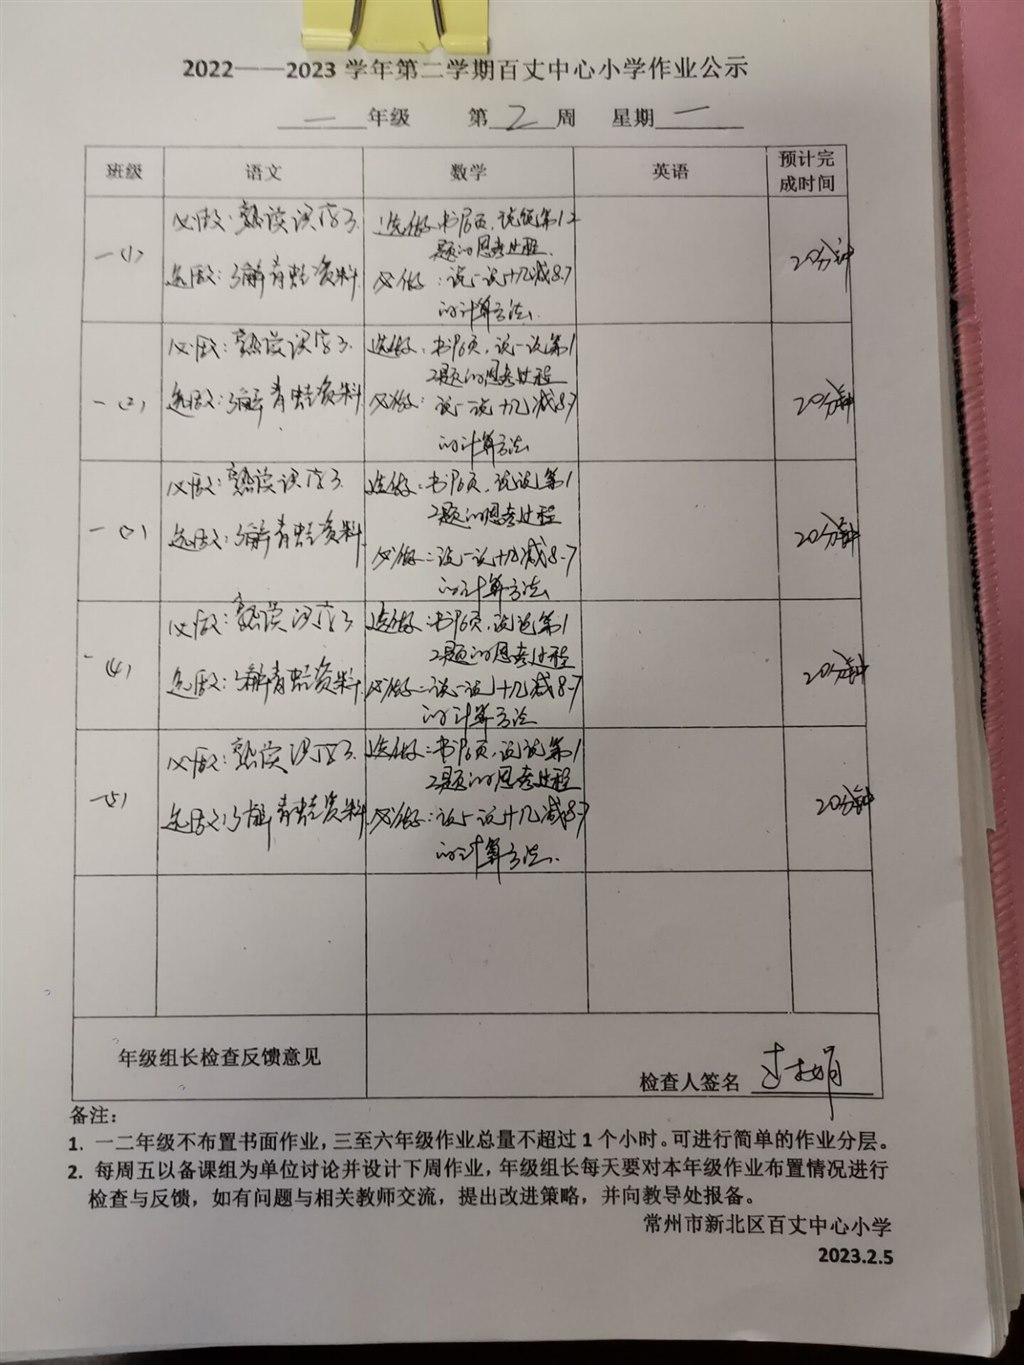 2022——2023学年第二学期百丈中心小学作业公示
一年级 第2周 星期一
班级 语文 数学 英语 预计完成时间
一(1)
必做：熟读识字3.
选做：了解青蛙资料
选做：书P6页，说说第1 2
题的思考过程.
必做：说一说十几减8.7
的计算方法.
20分钟
一(2)
必做：熟读识字3.
选做：了解青蛙资料
选做：书P6页，说一说第1
2题的思考过程
必做：说一说十几减8.7
的计算方法
20分钟
必做：熟读识字3.
选做：了解青蛙资料
选做：书P6页，说说第1
2题的思考过程
必做：说一说十几减8.7
的计算方法.
20分钟
一(4)
必做：熟读识字3
选做：了解青蛙资料
选做：书P6页，说说第1
2题的思考过程
必做：说一说十几减8.7
的计算方法
20分钟
一(5)
必做：熟读识字3.
选做：了解青蛙资料
选做：书P6页，说说第1
2题的思考过程
必做：说一说十几减8.7
的计算方法.
20分钟
年级组长检查反馈意见
检查人签名
备注：
1. 一二年级不布置书面作业，三至六年级作业总量不超过1个小时。可进行简单的作业分层。
2. 每周五以备课组为单位讨论并设计下周作业，年级组长每天要对本年级作业布置情况进行
检查与反馈，如有问题与相关教师交流，提出改进策略，并向教导处报备。
常州市新北区百丈中心小学
2023.2.5